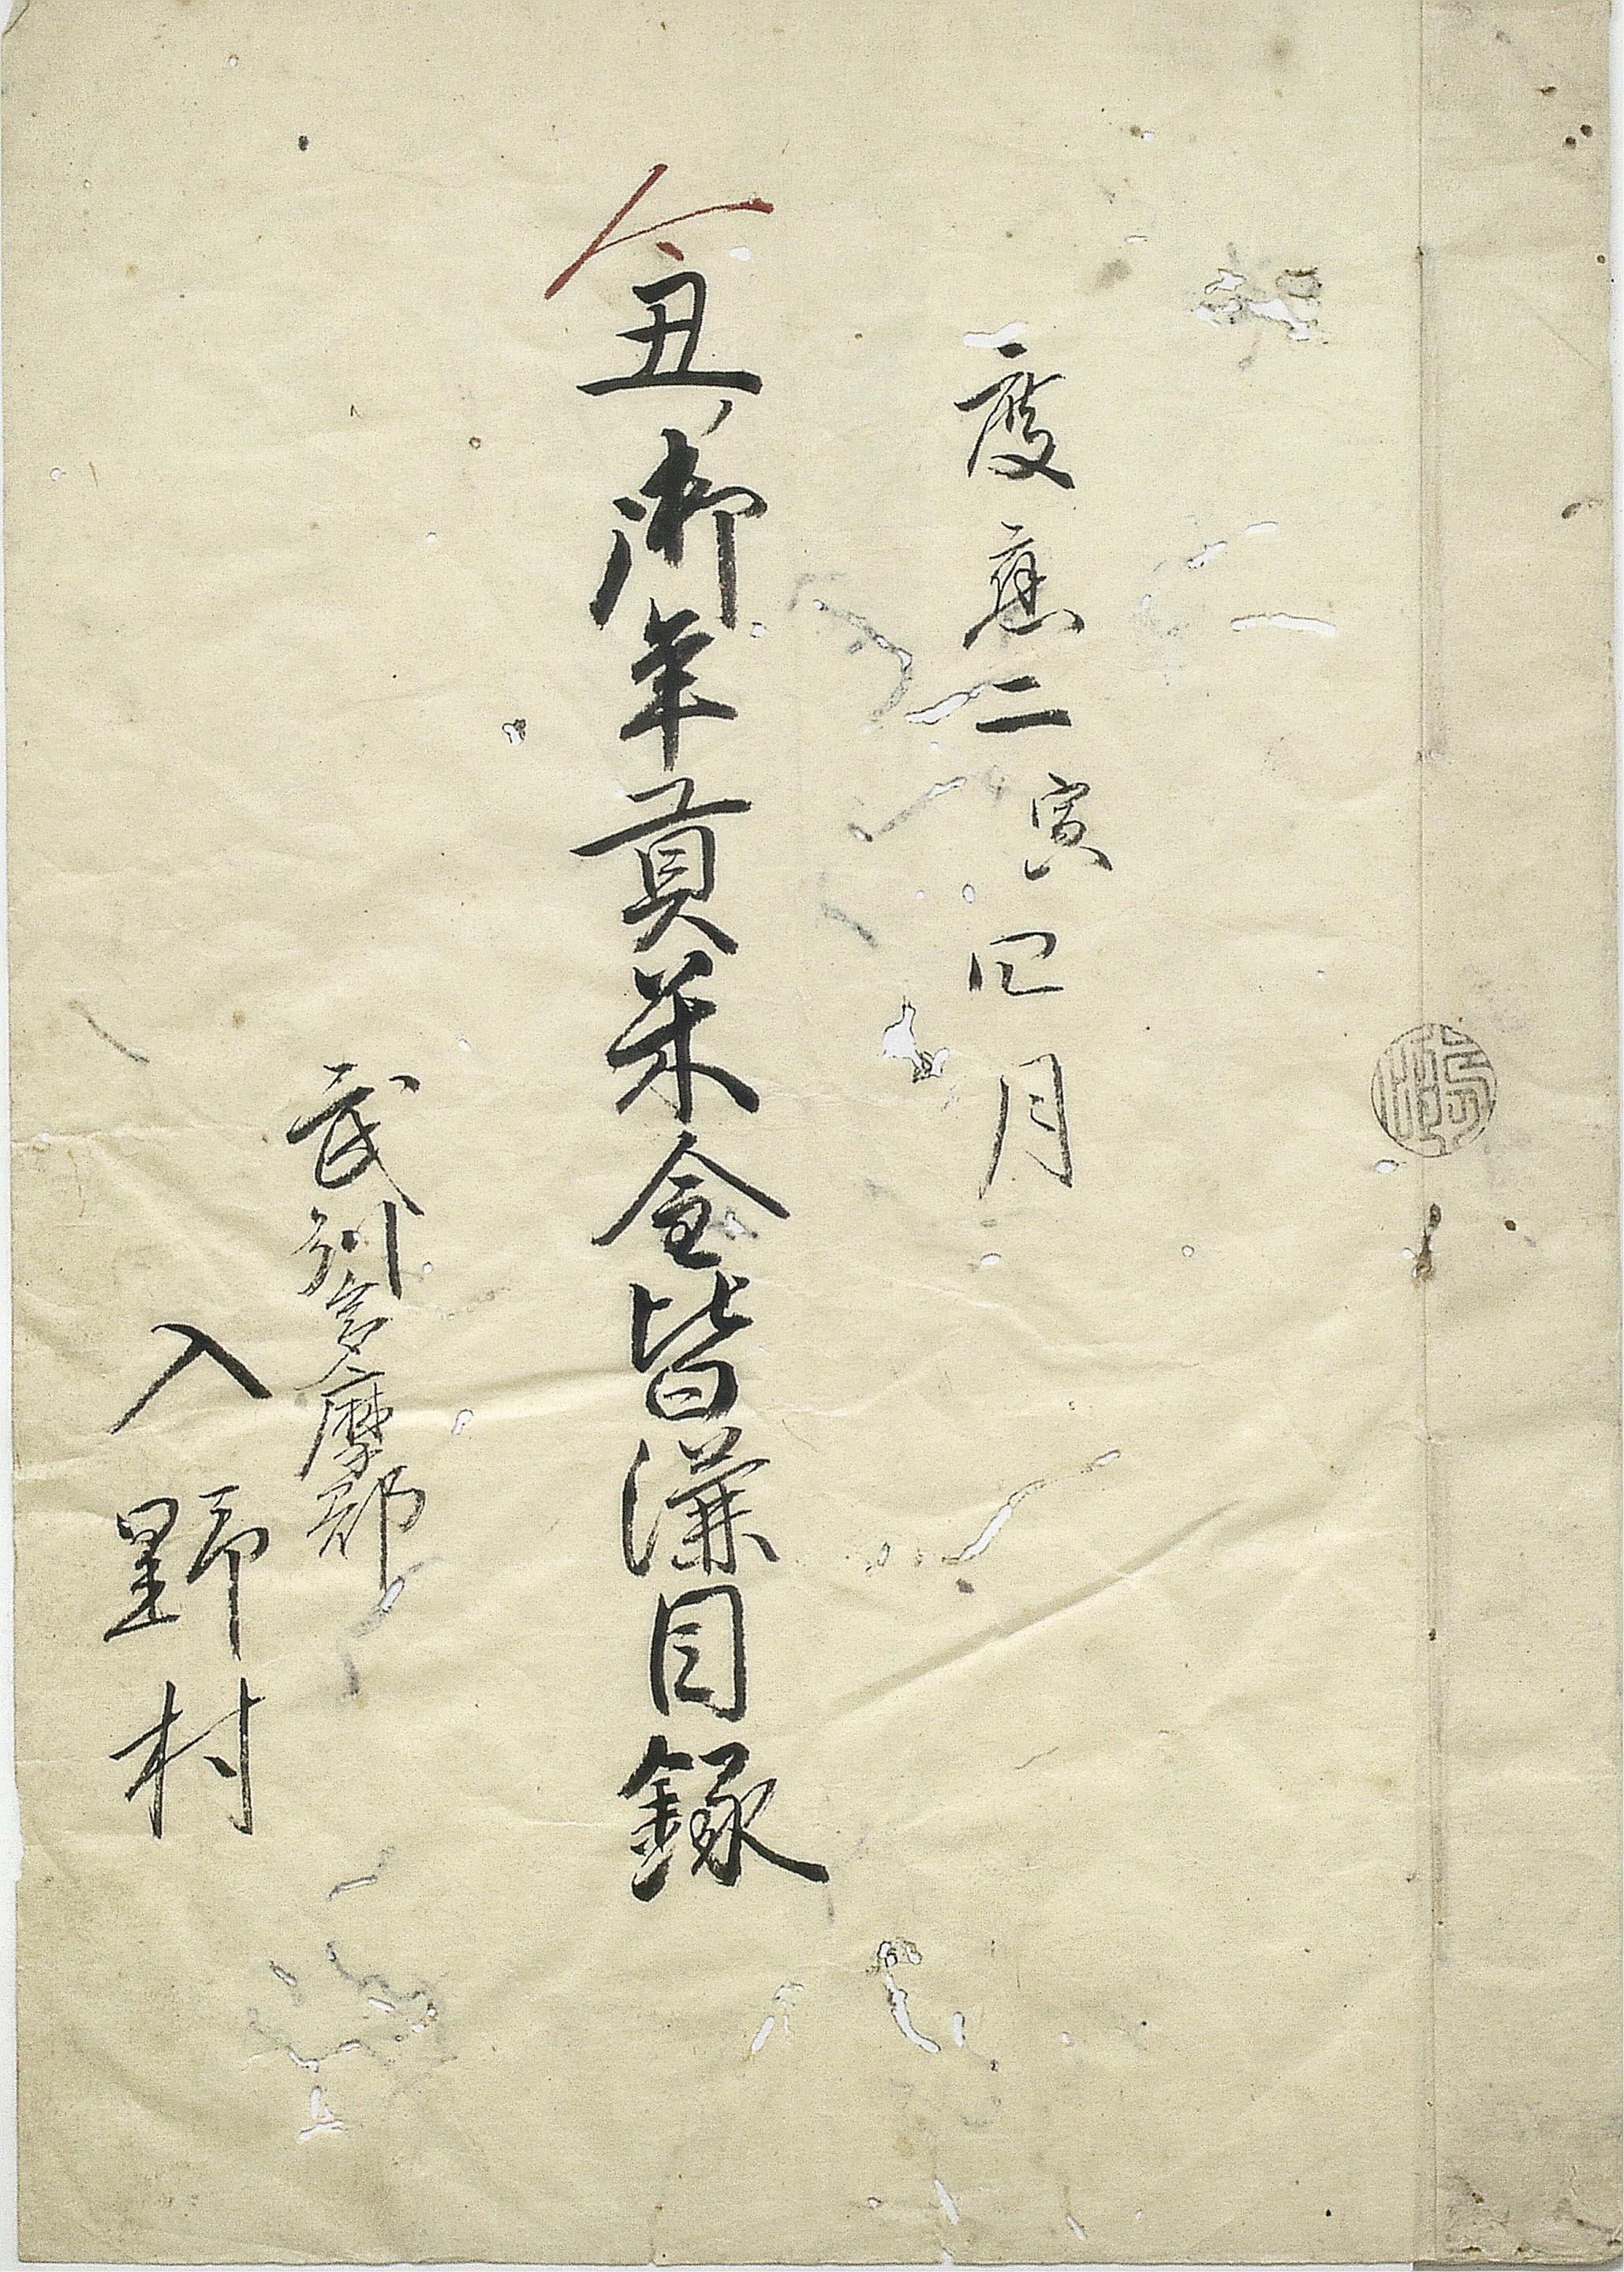 慶應二寅四月
丑御年貢米金皆濟目録
武州多摩郡
入野村